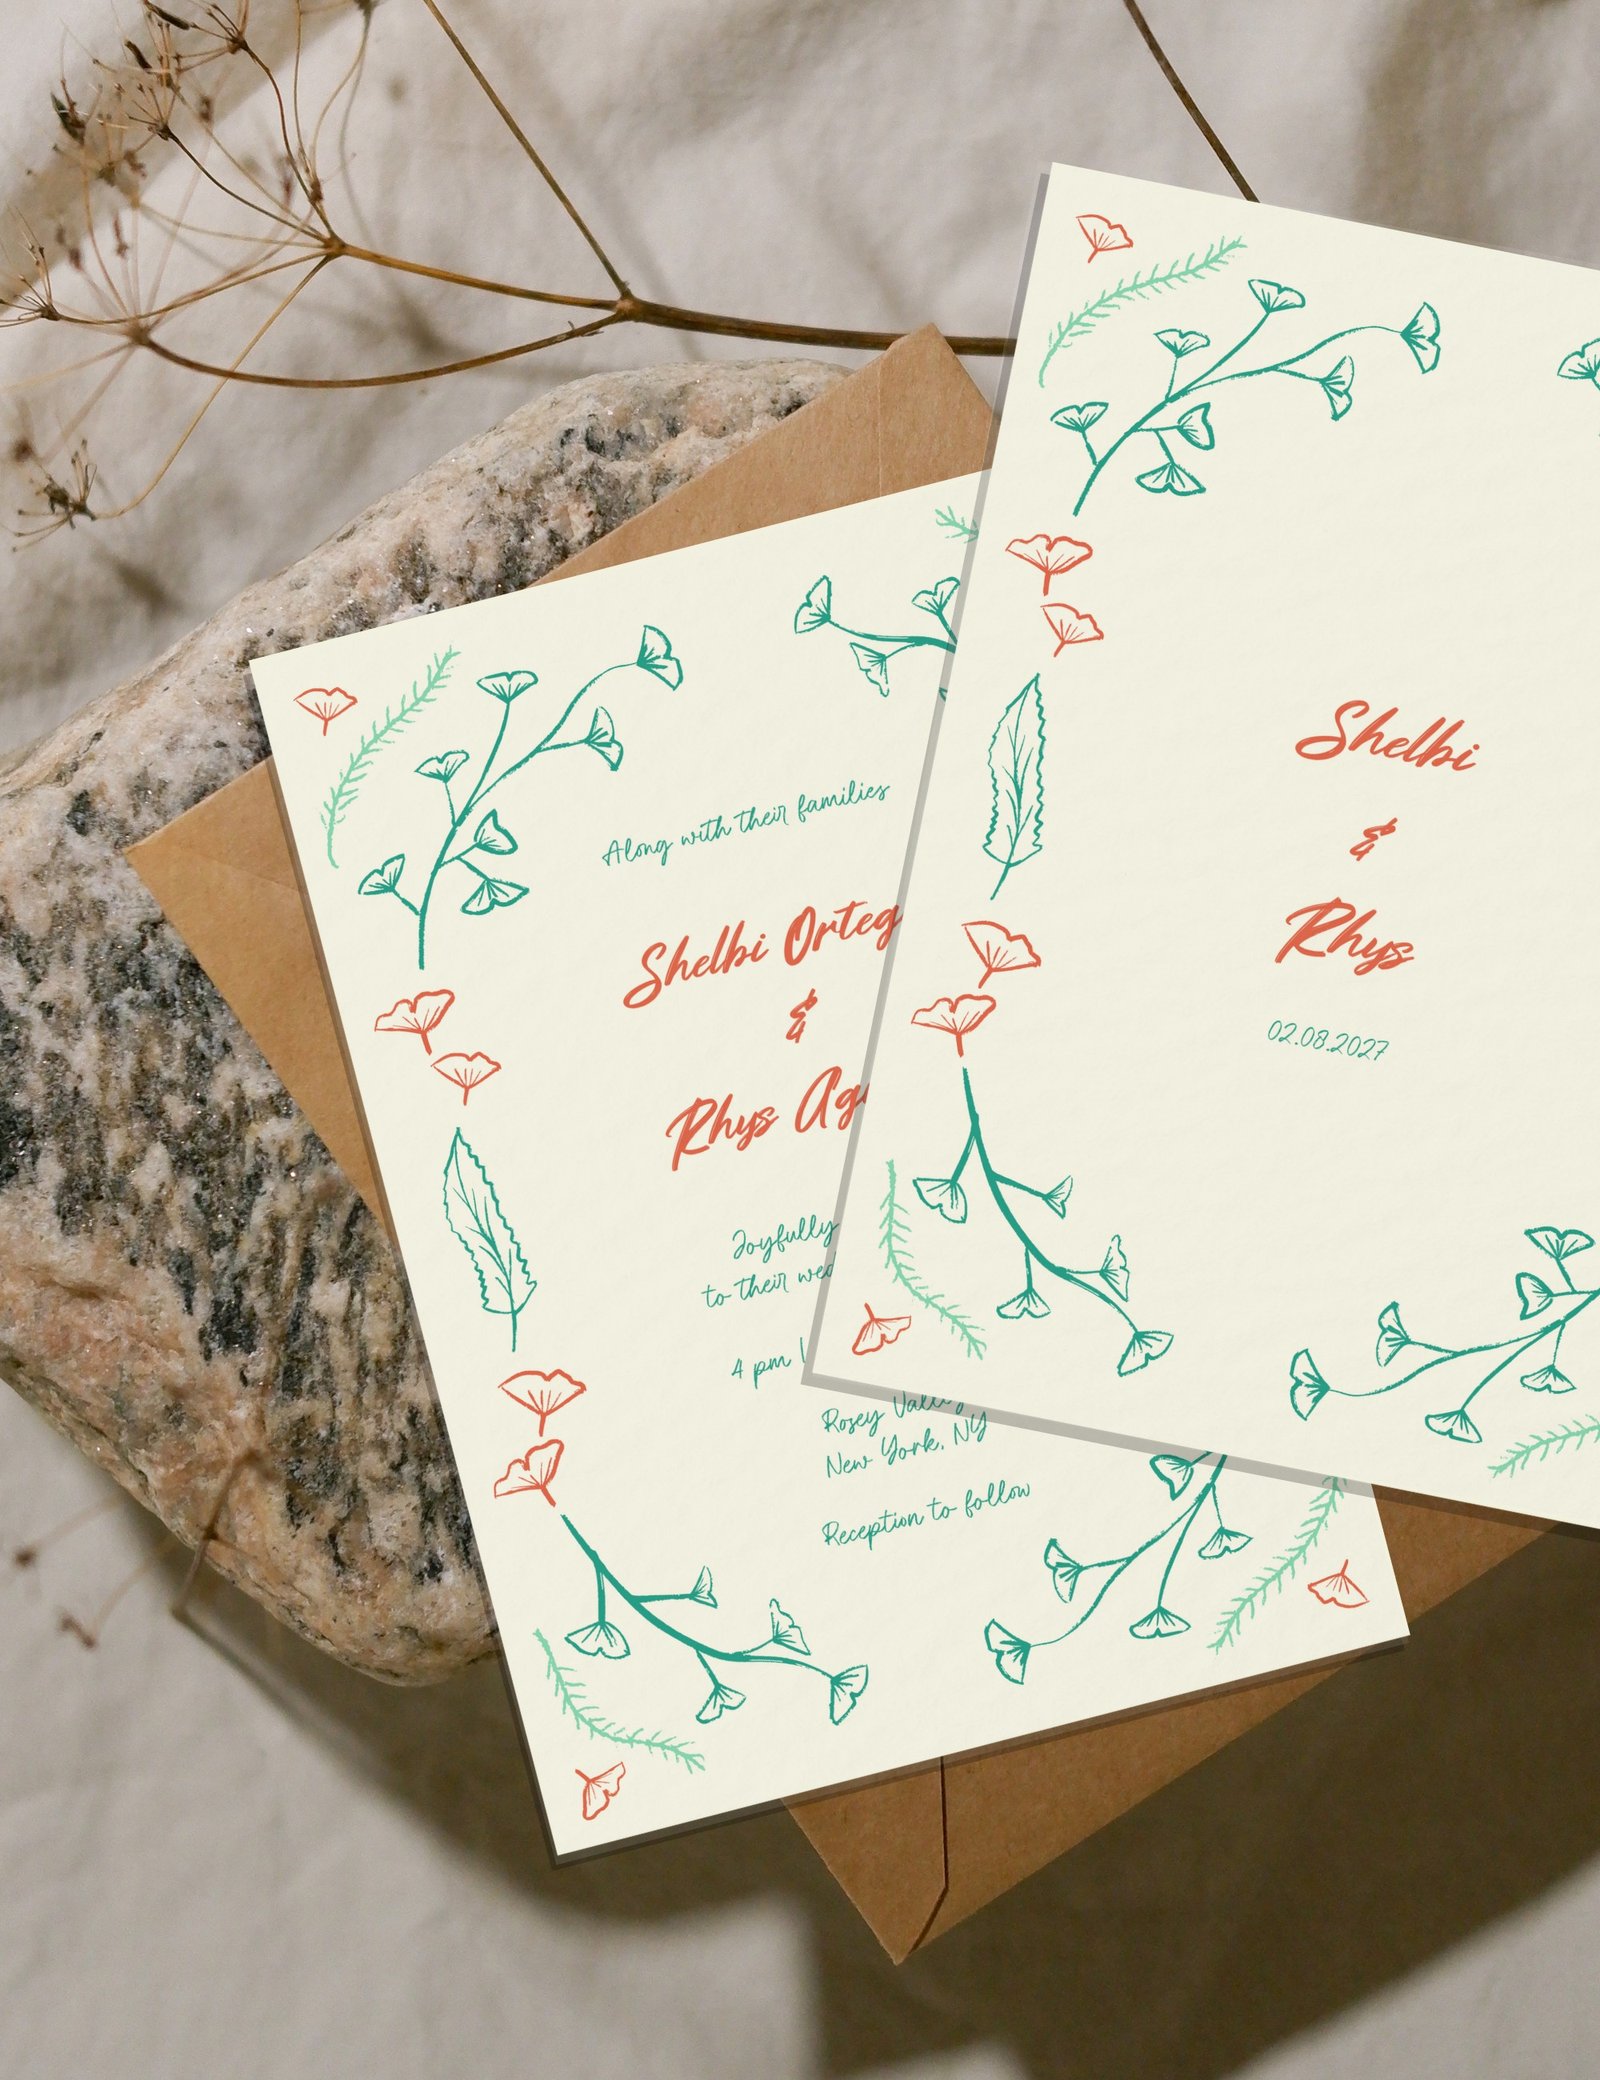 Along with their families
Shelbi Orteg
&
Rhys Ag
Joyfully
to their wed
4 pm
Rosey Valley
New York, NY
Reception to follow
Shelbi
&
Rhys
02.08.2027